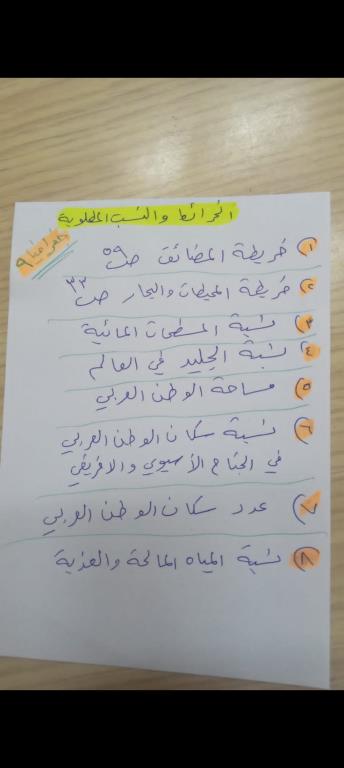 الخرائط والنسب المطلوبة
جغرافيا ٩
١) خريطة المضائق ص ٥٩
٢) خريطة المحيطات والبحار ص ٣٣
٣) نسبة المسطحات المائية
٤) نسبة الجليد في العالم
٥) مساحة الوطن العربي
٦) نسبة سكان الوطن العربي
في الجناح الأسيوي والافريقي
٧) عدد سكان الوطن العربي
٨) نسبة المياه المالحة والعذبة